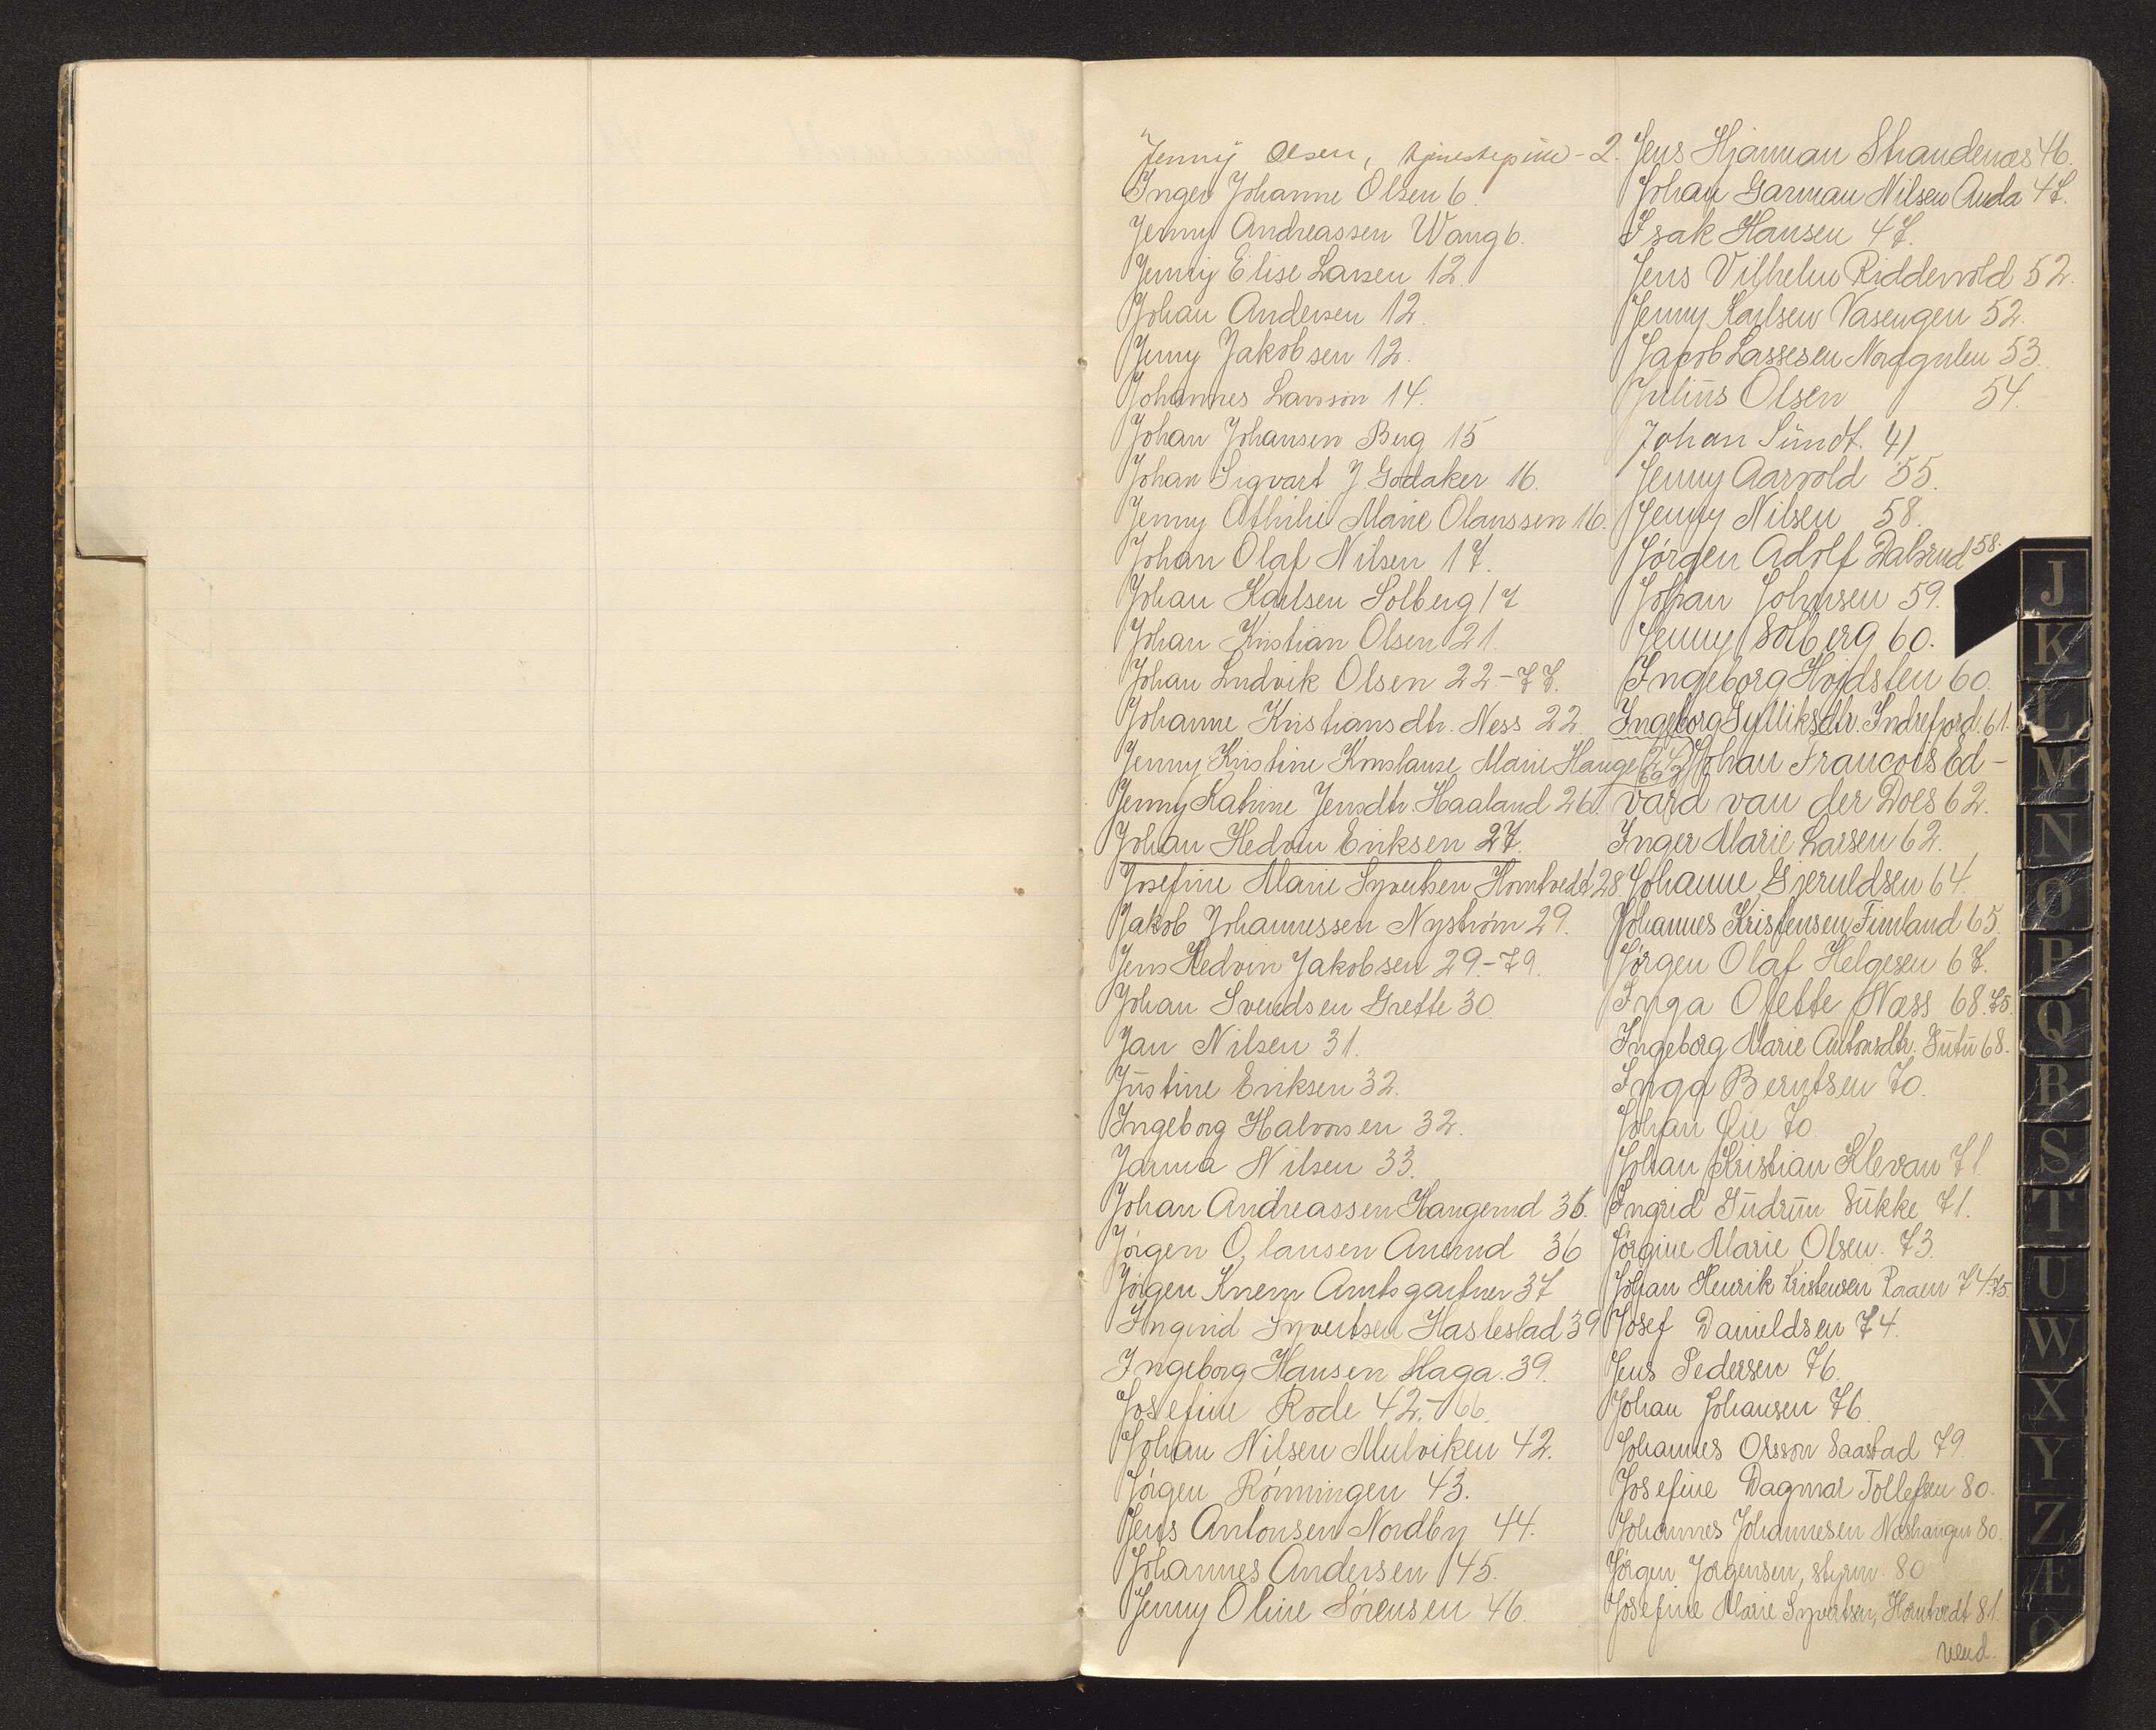 Jenny Olsen, tjenestepike - 2.
Inger Johanne Olsen 6.
Jenny Andreassen Wang 6.
Jenny Elise Larsen 12.
Johan Andersen 12.
Jenny Jakobsen 12.
Johannes Larsson 14.
Johan Johansen Berg 15
Johan Sigvart J. Godaker 16.
Jenny Marie Olaussen 16.
Johan Olaf Nilsen 17.
Johan Karlsen Solberg 17
Johan Kristian Olsen 21.
Johan Ludvik Olsen 22-77.
Johanne Kristiansdtr. Ness 22.
Jenny Kristine Konstanse Marie Hauge
Jenny Katrine Jensdtr. Haaland 26.
Johan Hedvin Eriksen 27.
Josefine Marie Syvertsen Homtvedt 28.
Jakob Johannessen Nyström 29.
Jens Hedvin Jakobsen 29.-79.
Johan Svendsen Grette 30.
Jan Nilsen 31.
Justine Eriksen 32.
Ingeborg Halvorsen 32.
Janna Nilsen 33.
Johan Andreassen Haugerud 36.
Jörgen Olausen Amrud 36
Jörgen Knem Amtsgartner 37
Ingerid Syvertsen Haslestad 39
Ingeborg Hansen Haga. 39.
Josefine Rode 42.-66.
Johan Nilsen Mulviken 42.
Jörgen Rönningen 43.
Jens Antonsen Nordby 44.
Johannes Andersen 45.
Jenny Oline Sörensen 46.
Jens Hjarman Strandenæs 46.
Johan Garman Nilsen Anda 47.
Isak Hansen 47.
Jens Vilhelm Riddervold 52.
Jenny Karlsen Vasengen 52.
Jacob Lassesen Nordgulen 53.
Julius Olsen 54.
Johan Sundt. 41
Jenny Aarvold 55.
Jenny Nilsen 58.
Jörgen Adolf Dalsrud 58.
Johan Johnsen 59.
Jenny Solberg 60.
Ingeborg Hvidsten 60.
Ingeborg Indrefjord. 61.
Johan Francois Ed-
vard van der Does 62.
Inger Marie Larsen 62.
Johanne Gjeruldsen 64.
Johannes Kristensen Fimland 65.
Jörgen Olaf Helgesen 67.
Inga Ofette Næss 68.75.
Ingeborg Marie Antonsdtr. 68.
Inga Berntsen 70.
Johan Qie 70.
Johan Kristian Klevan 71.
Ingrid Gudrun Sukke 71.
Jörgine Marie Olsen. 73.
Johan Henrik Kristensen Raaen 74.75.
Josef Danieldsen 74.
Jens Pedersen 76.
Johan Johansen 76.
Johannes Olsson Saastad 79.
Josefine Dagmar Tollefsen 80.
Johannes Johannesen 80.
Jörgen Jörgensen, styrm. 80
Josefine Marie Syvertsen, Homtvedt 81.
vend.
J
K
L
M
N
O
P
Q
R
S
T
U
W
X
Y
Z
Æ